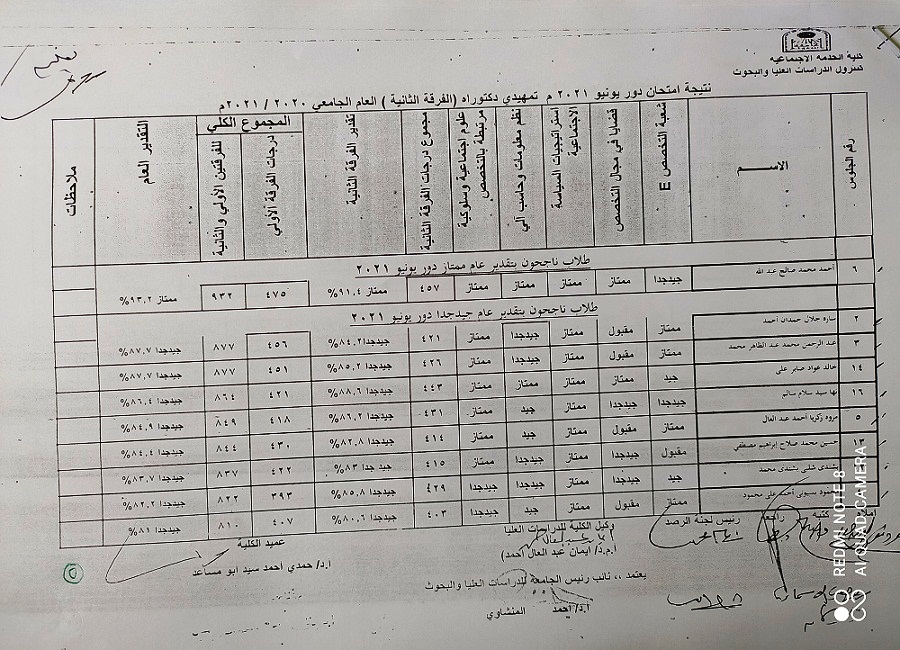 كلية الخدمة الاجتماعية
كنترول الدراسات العليا والبحوث
نتيجة امتحان دور يونيو ٢٠٢١ م تمهيدي دكتوراه (الفرقة الثانية) العام الجامعي ٢٠٢٠ / ٢٠٢١م
رقم الجلوس
الاســـم
شعبة التخصص E
قضايا في مجال التخصص
استراتيجيات السياسة الاجتماعية
نظم معلومات وحاسب آلي
علوم اجتماعية وسلوكية مرتبطة بالتخصص
مجموع درجات الفرقة الثانية
تقدير الفرقة الثانية
المجموع الكلي
درجات الفرقة الأولي
للفرقتين الأولي والثانية
التقدير العام
ملاحظات
طلاب ناجحون بتقدير عام ممتاز دور يونيو ٢٠٢١
٦ أحمد محمد صالح عبد الله جيدجدا ممتاز ممتاز ممتاز ممتاز ٤٥٧ ممتاز ٩١.٤% ٤٧٥ ٩٣٢ ممتاز ٩٣.٢%
طلاب ناجحون بتقدير عام جيدجدا دور يونيو ٢٠٢١
٢ ساره جلال حمدان أحمد ممتاز مقبول ممتاز جيدجدا ممتاز ٤٢١ جيدجدا ٨٤.٢% ٤٥٦ ٨٧٧ جيدجدا ٨٧.٧%
٣ عبد الرحمن محمد عبد الظاهر محمد ممتاز مقبول ممتاز جيدجدا ممتاز ٤٢٦ جيدجدا ٨٥.٢% ٤٥١ ٨٧٧ جيدجدا ٨٧.٧%
١٤ خالد عواد صابر علي جيد ممتاز ممتاز ممتاز ممتاز ٤٤٣ جيدجدا ٨٨.٦% ٤٢١ ٨٦٤ جيدجدا ٨٦.٤%
١٦ نها سيد سلام سالم جيدجدا جيدجدا ممتاز جيد ممتاز ٤٣١ جيدجدا ٨٦.٢% ٤١٨ ٨٤٩ جيدجدا ٨٤.٩%
٥ مروه زكريا أحمد عبد العال ممتاز مقبول ممتاز جيد ممتاز ٤١٤ جيدجدا ٨٢.٨% ٤٣٠ ٨٤٤ جيدجدا ٨٤.٤%
١٣ حسين محمد صلاح ابراهيم مصطفي مقبول جيدجدا ممتاز جيدجدا جيدجدا ٤١٥ جيد جدا ٨٣% ٤٢٢ ٨٣٧ جيدجدا ٨٣.٧%
بشندي محمد جيد جيدجدا ممتاز جيدجدا جيدجدا ٤٢٩ جيدجدا ٨٥.٨% ٣٩٣ ٨٢٢ جيدجدا ٨٢.٢%
أحمد علي محمود ممتاز مقبول ممتاز جيد جيدجدا ٤٠٣ جيدجدا ٨٠.٦% ٤٠٧ ٨١٠ جيدجدا ٨١%
رئيس لجنة الرصد
وكيل الكلية للدراسات العليا
أ.م.د/ ايمان عبد العال أحمد)
عميد الكلية
أ.د/ حمدي أحمد سيد أبو مساعد
يعتمد ،، نائب رئيس الجامعة للدراسات العليا والبحوث
أ.د/ أحمد المنشاوي
REDMI NOTE 8
AI QUAD CAMERA